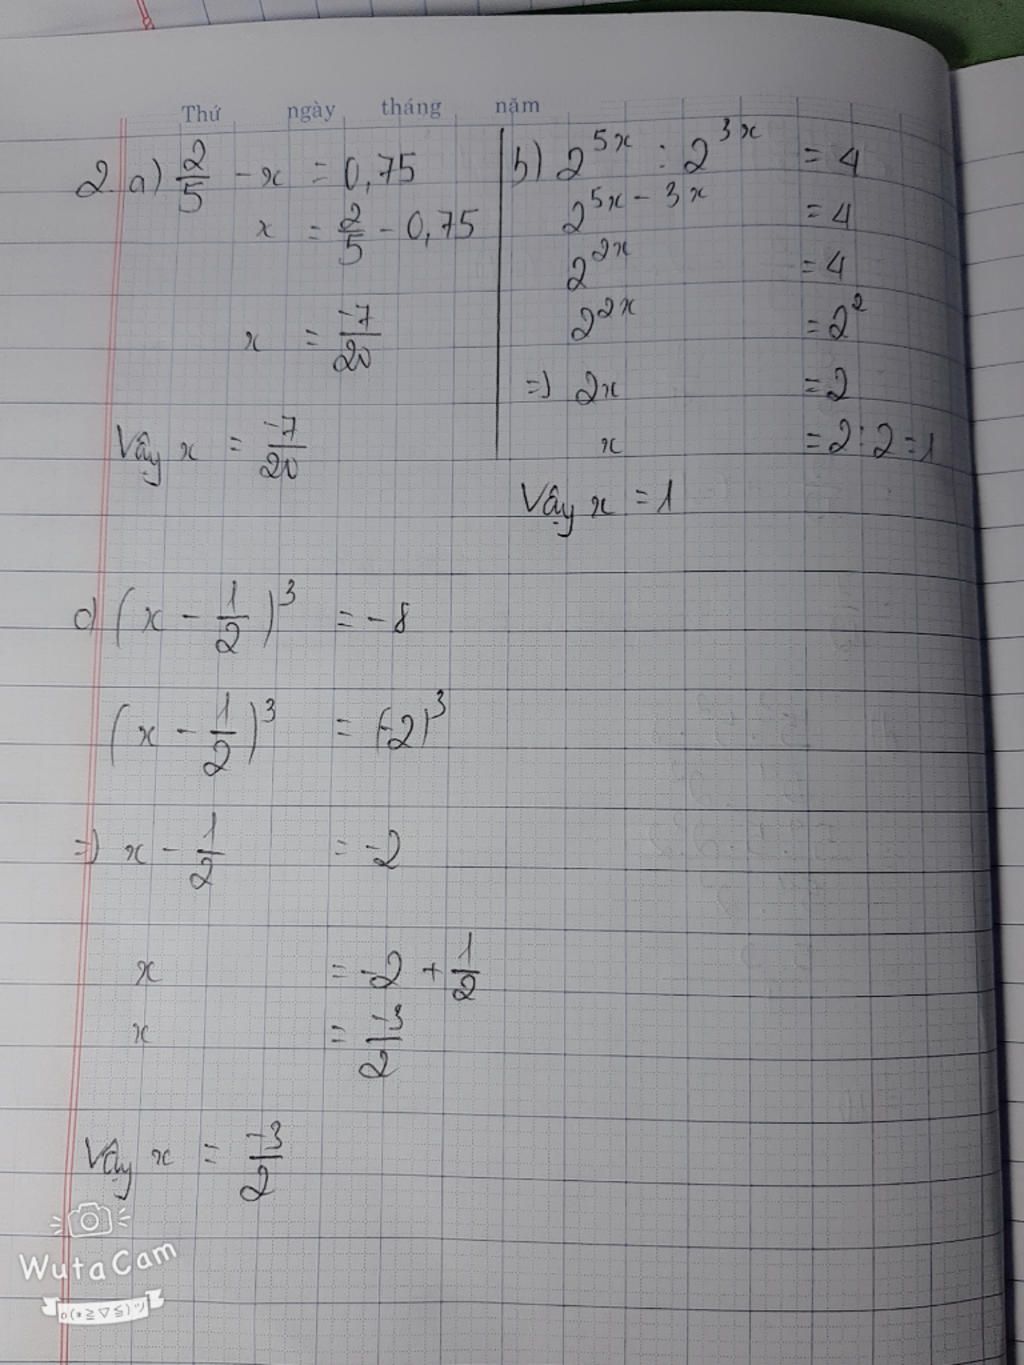 Thứ ngày tháng năm
2. a) 2/5 - x = 0,75
x = 2/5 - 0,75
x = -7/20
Vậy x = -7/20
b) 2^{5x} : 2^{3x} = 4
2^{5x - 3x} = 4
2^{2x} = 4
2^{2x} = 2^2
=) 2x = 2
x = 2 : 2 = 1
Vậy x = 1
c) (x - 1/2)^3 = -8
(x - 1/2)^3 = (-2)^3
=) x - 1/2 = -2
x = -2 + 1/2
x = -3/2
Vậy x = -3/2
WutaCam
o(*≧▽≦)ツ